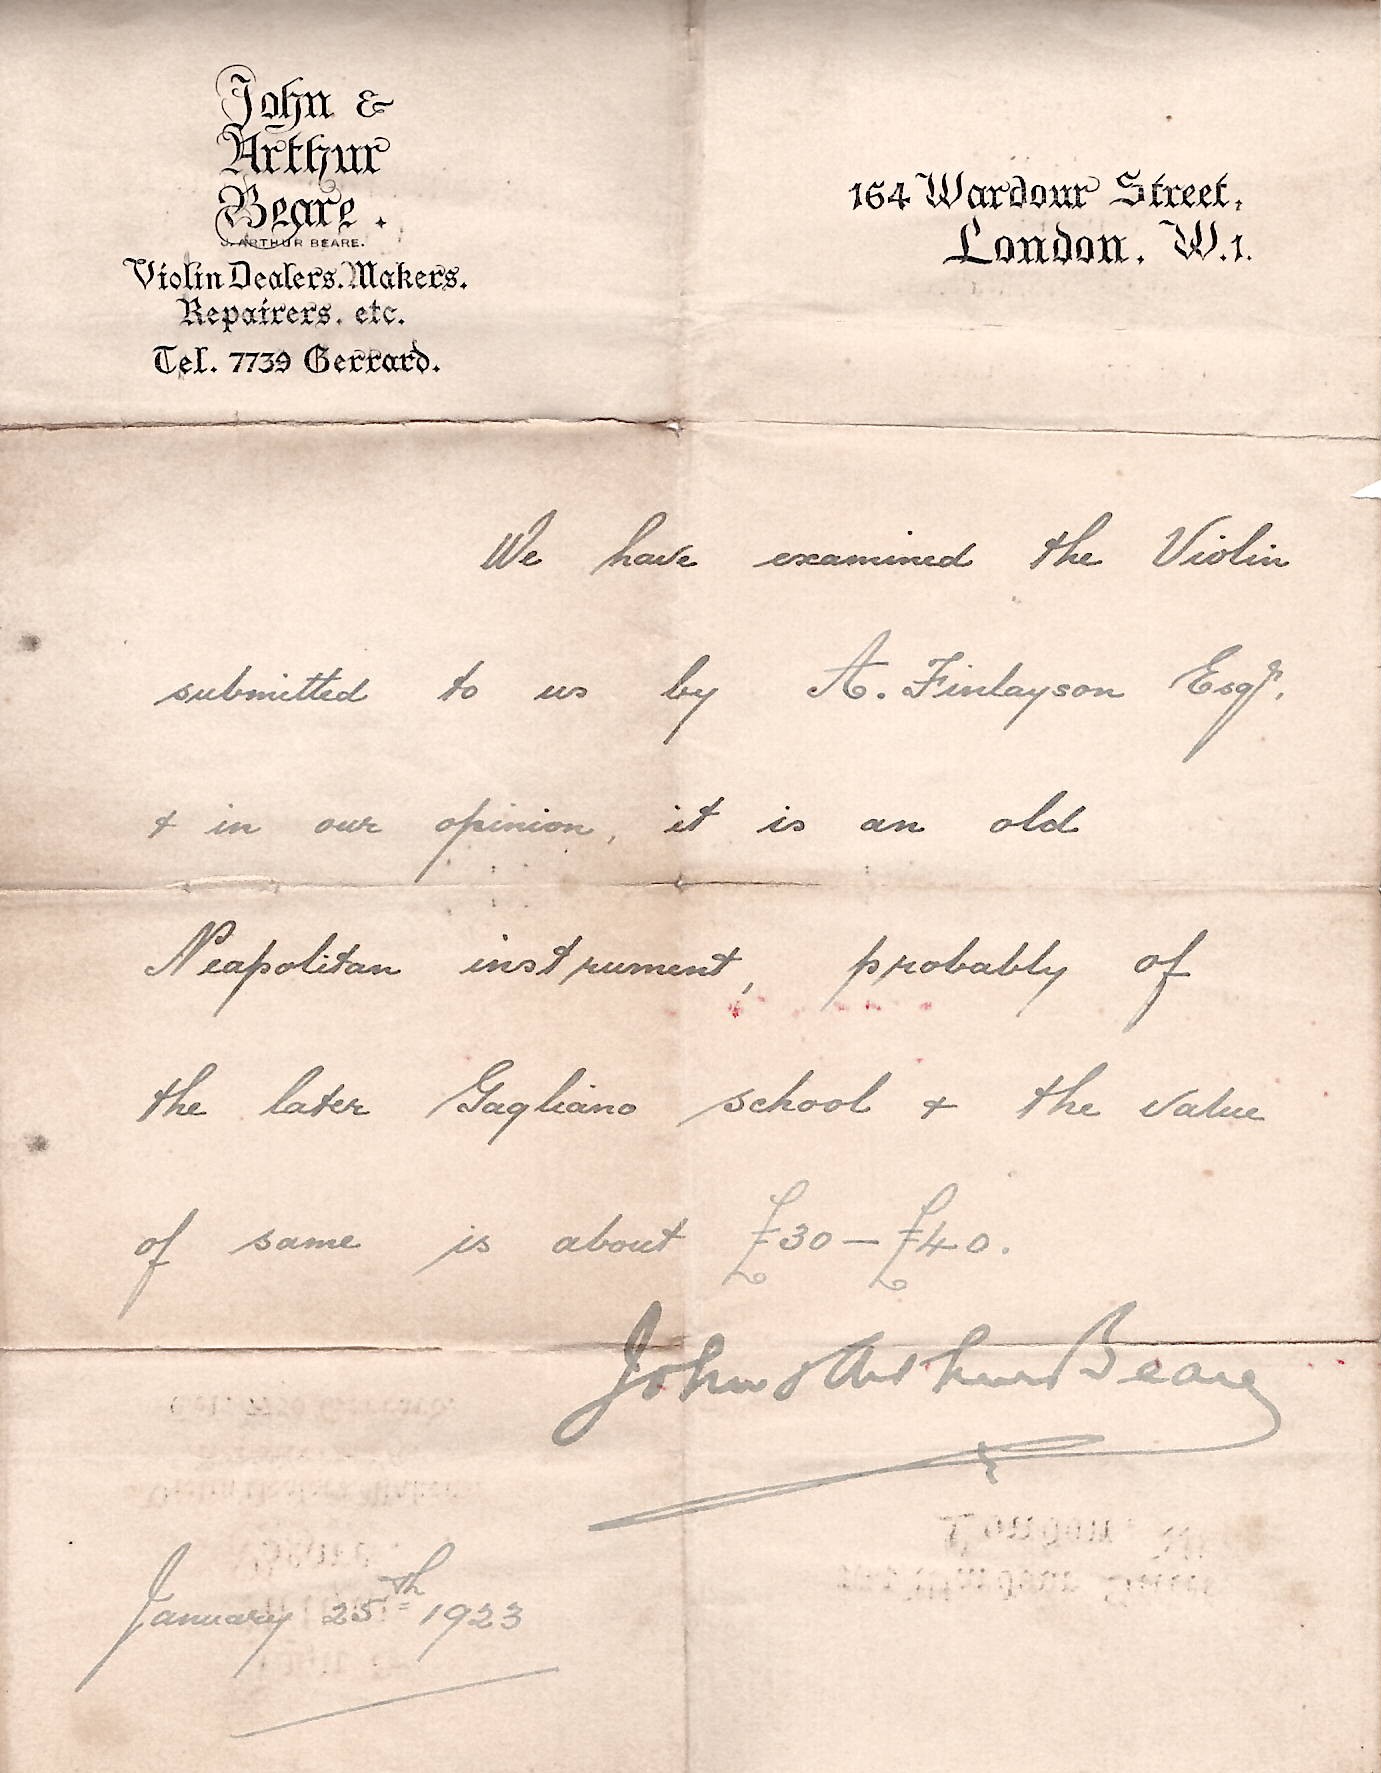 John &
Arthur
Beare.
J. ARTHUR BEARE.
Violin Dealers. Makers.
Repairers. etc.
Tel. 7739 Gerrard.
164 Wardour Street,
London. W.1.
We have examined the Violin
submitted to us by A. Finlayson Esqr.
& in our opinion, it is an old
Neapolitan instrument, probably of
the later Gagliano school & the value
of same is about £30 – £40.
John & Arthur Beare
January 25th 1923